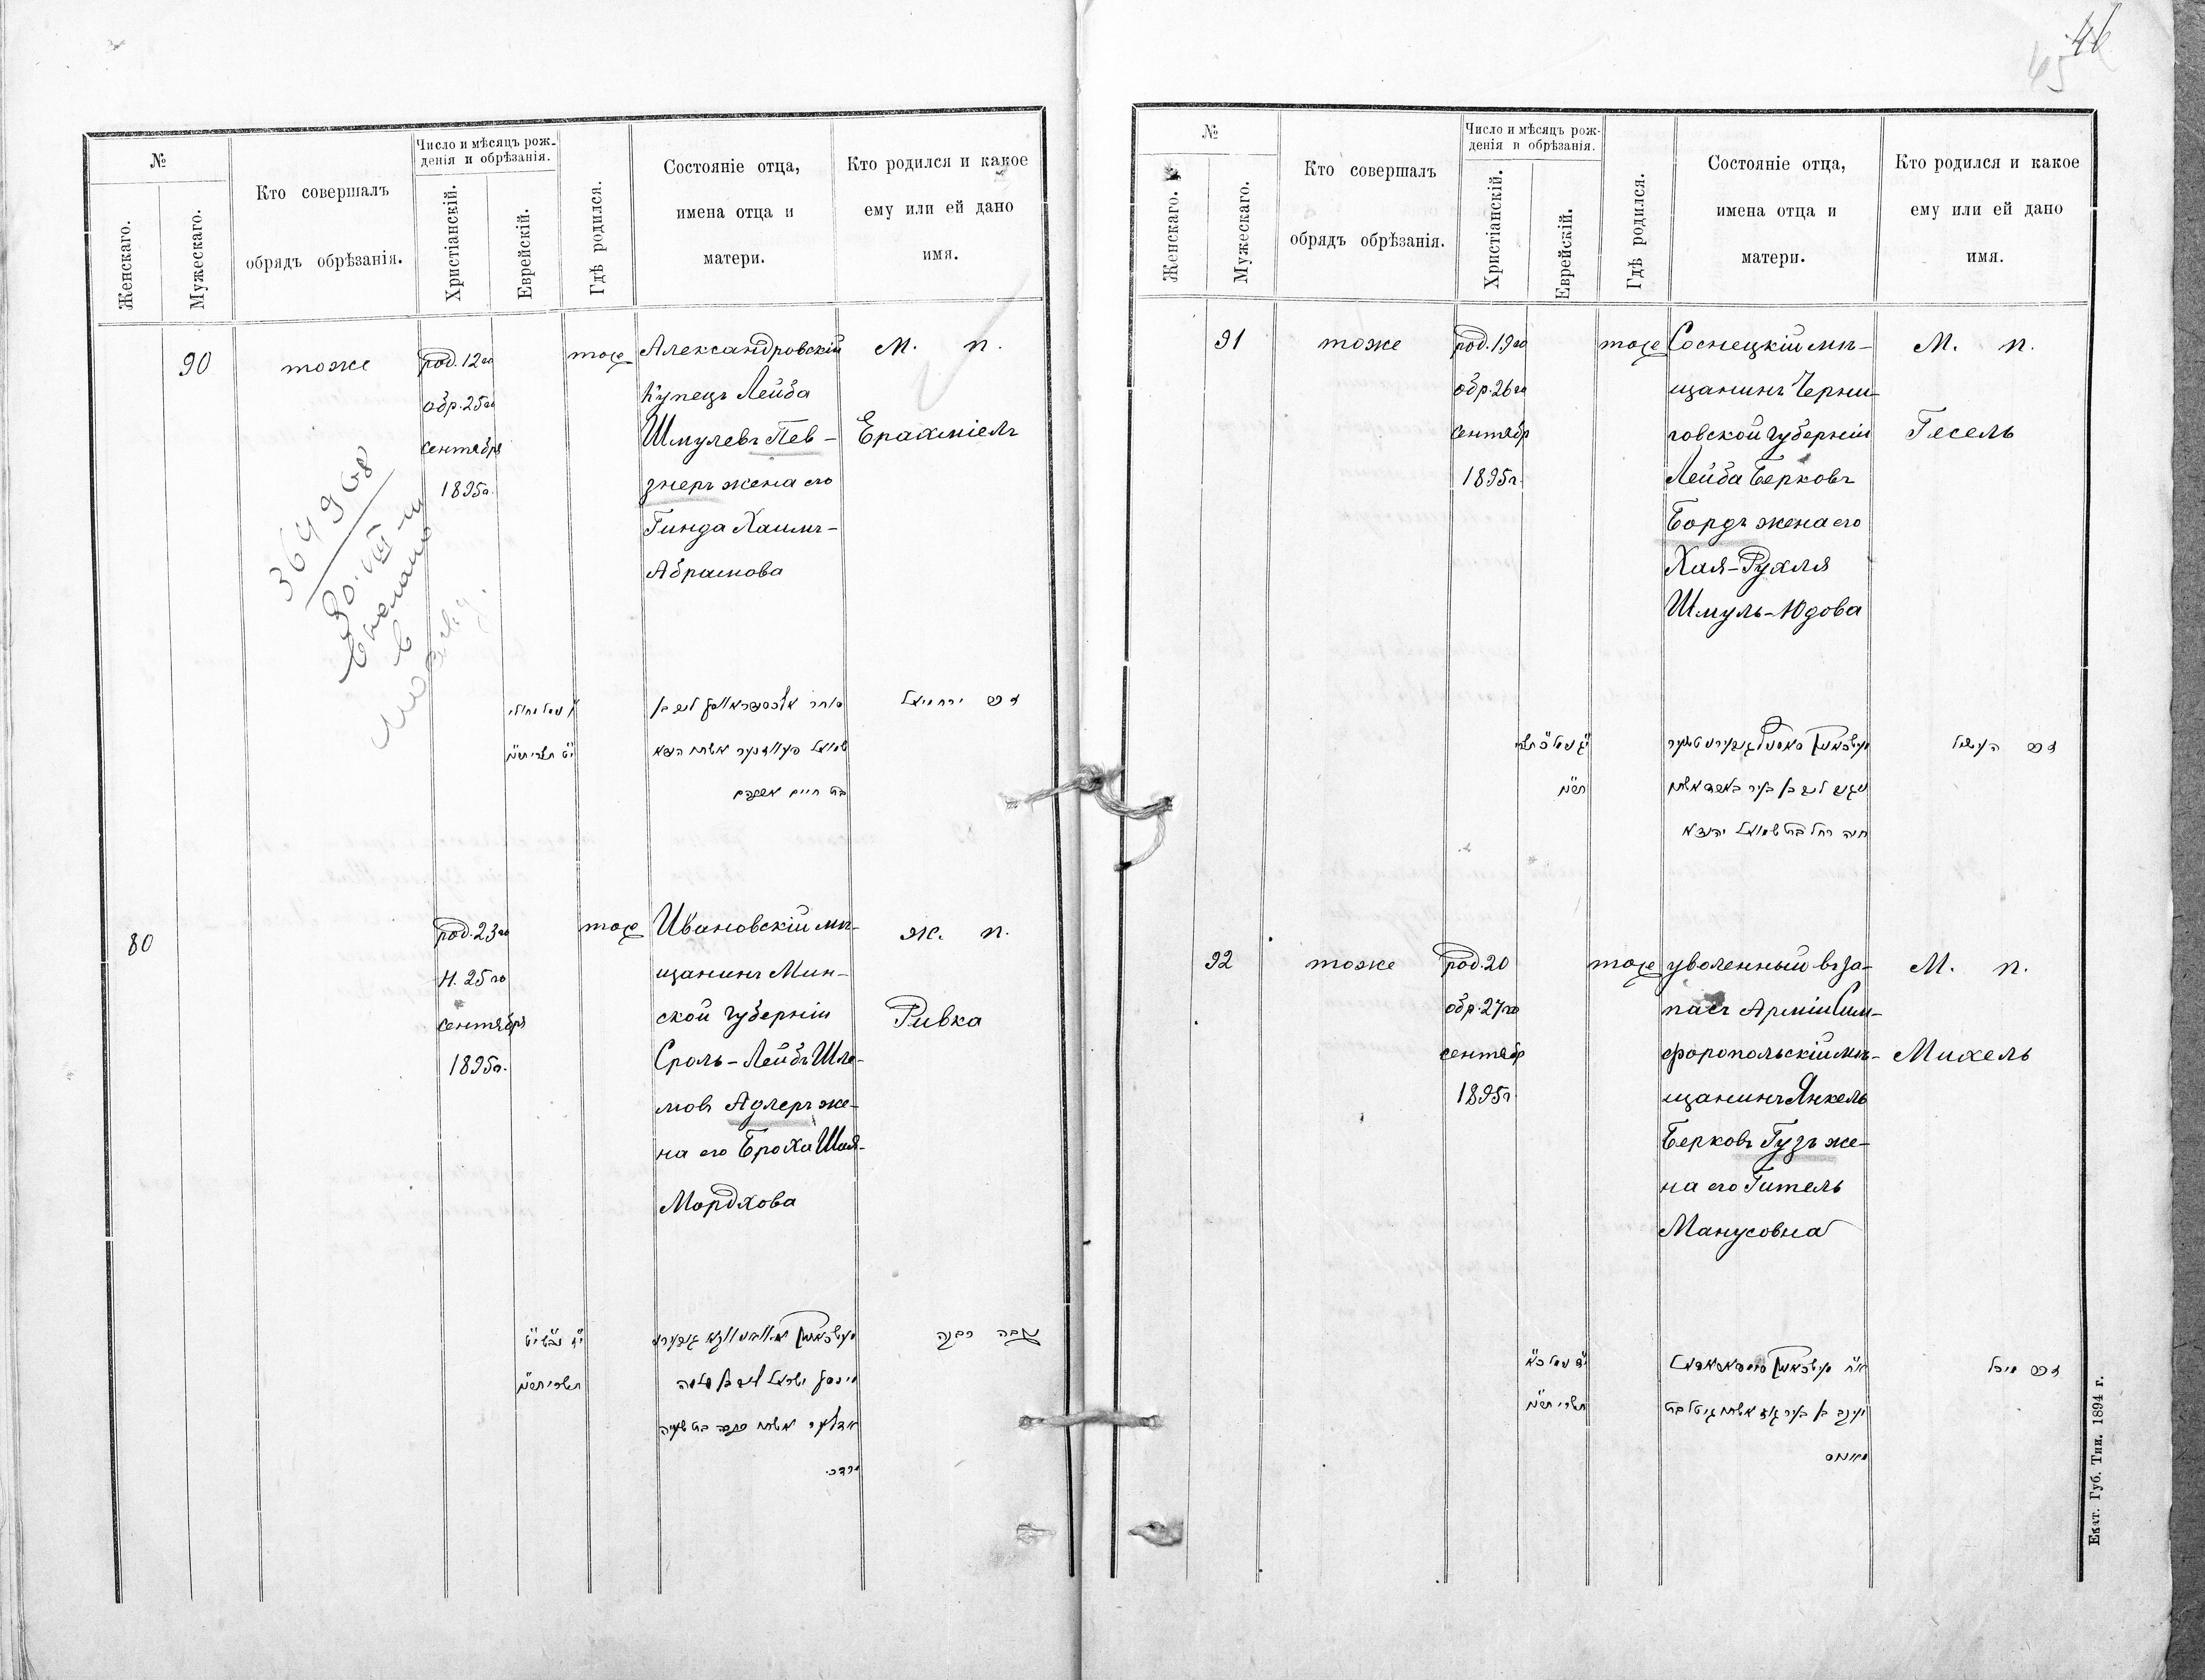 46
45
№
Женскаго.
Мужескаго.
Кто совершалъ
обрядъ обрѣзанія.
Число и мѣсяцъ рож-
денія и обрѣзанія.
Христіанскій.
Еврейскій.
Гдѣ родился.
Состояніе отца,
имена отца и
матери.
Кто родился и какое
ему или ей дано
имя.
90
тоже
род. 12го
обр. 25го
сентября
1895г.
тоже
Александровскій
купецъ Лейба
Шмулевъ Пев-
знеръ жена его
Гинда Хаимъ-
Абрамова
М. п.
Ерахміель
364968
30.VIII
в
Москву.
זכר ירחמיאל
סוחר
שמואל פעווזנער אשתו הינדא
בת חיים אברהם
80
род. 23го
Н. 25го
сентября
1895г.
тоже
Ивановскій мѣ-
щанинъ Мин-
ской губерніи
Сроль-Лейбъ Шле-
мовъ Адлеръ же-
на его Броха Шая-
Мордхова
ж. п.
Ривка
נקבה רבקה
תשרי
מינסק ישראל ליב בן שלמה
אדלער אשתו ברכה בת ישעיה
מרדכי
№
Женскаго.
Мужескаго.
Кто совершалъ
обрядъ обрѣзанія.
Число и мѣсяцъ рож-
денія и обрѣзанія.
Христіанскій.
Еврейскій.
Гдѣ родился.
Состояніе отца,
имена отца и
матери.
Кто родился и какое
ему или ей дано
имя.
91
тоже
род. 19го
обр. 26го
сентябр
1895г.
тоже
Соснецкій мѣ-
щанинъ Черни-
говской губерніи
Лейба Берковъ
Бордъ жена его
Хая-Рухля
Шмуль-Юдова
М. п.
Гесель
זכר העשיל
חיה רחל בת שמואל יהודא
92
тоже
род. 20
обр. 27го
сентябр
1895г
тоже
уволенный въ за-
пасъ Арміи Сим-
форопольскій мѣ-
щанинъ Янкель
Берковъ Гузъ же-
на его Гитель
Манусовна
М. п.
Михель
זכר מיכל
תשרי
יענקב בן בער גוז אשתו גיטל בת
מאנוס
Екат. Губ. Тип. 1894 г.